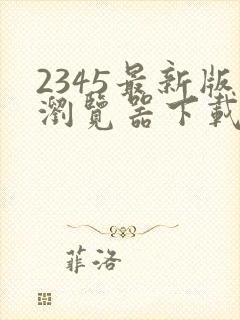 2345最新版
瀏覽器下載
菲洛